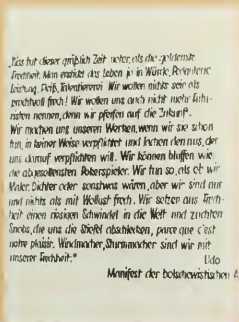 "Was tut dieser gräßlich Zeit
Frechheit. Man erstickt das Leben ja in Würde,
Leistung, Fleiß, Wir wollen nichts sein als
prachtvoll frech! Wir wollen uns auch nicht mehr Futu-
risten nennen, denn wir pfeifen auf die Zukunft.
Wir machen uns unseren Werken, wenn wir sie schon
tun, in keiner Weise verpflichtet und lachen den aus, der
uns darauf verpflichten will. Wir können bluffen wie
die abgesottensten Pokerspieler. Wir tun so, als ob wir
Maler, Dichter oder sonstwas wären, aber wir sind nur
und nichts als mit Wollust frech. Wir setzen aus Frech-
heit einen riesigen Schwindel in die Welt und züchten
Snobs, die uns die Stiefel abschlecken, parce que c'est
notre plaisir. Windmacher, Sturmmacher sind wir mit
unserer Frechheit."
Udo
Manifest der bolschewistischen